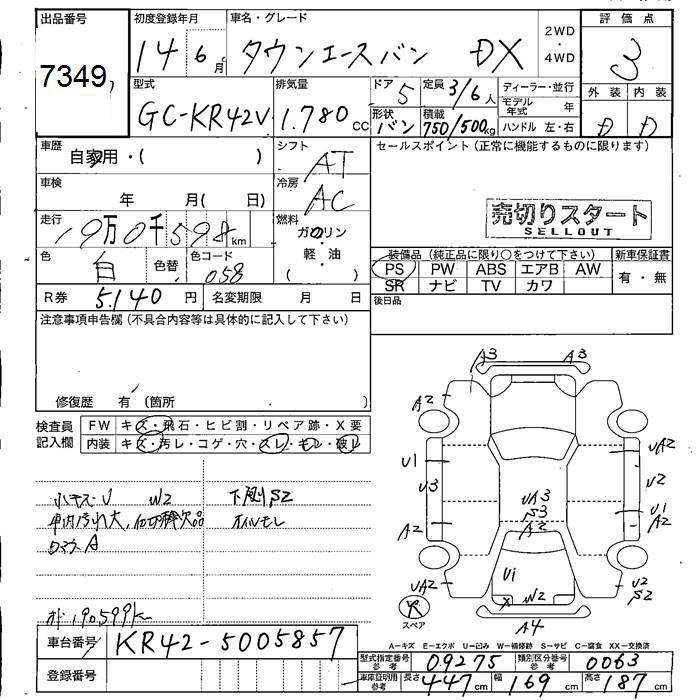 出品番号 初度登録年月 車名・グレード 2WD・4WD 評価点
7349 14年6月 タウンエースバン DX 3
型式 排気量 ドア 5 定員 3/6人 ディーラー・並行 外装 内装
GC-KR42V 1.780cc 形状 バン 積載 750/500kg モデル年式 年 D D
ハンドル 左・右
車歴 自家用・( ) シフト AT セールスポイント(正常に機能するものに限ります)
車検 年 月( 日) 冷房 AC
売切りスタート
SELLOUT
走行 19万0千598km 燃料 ガソリン・軽・油 ( )
装備品(純正品に限り○をつけて下さい) 新車保証書
色 白 色替 色コード 058
PS PW ABS エアB AW 有・無
SR ナビ TV カワ
R券 5.140円 名変期限 月 日 後日品
注意事項申告欄(不具合内容等は具体的に記入して下さい)
修復歴 有(箇所 )
検査員記入欄 FW キズ・飛石・ヒビ割・リペア跡・X要
内装 キズ・汚レ・コゲ・穴・スレ・キレ・破レ
小キズ・U W2 下廻りS2
車内汚れ大、 欠品 オイルモレ
A
190599k
A3 A3
A2
U1
U3
A2
UA2
UA2
U2
U1
A2
U2
S2
UA3
S3
A2
U1
W2
X
A4
スペア
車台番号 KR42-5005857
A-キズ E-エクボ U-凹み W-補修跡 S-サビ C-腐食 XX-交換済
登録番号
型式指定番号 参考 09275 類別区分番号 参考 0063
車庫証明用 参考 長さ 447cm 幅 169cm 高さ 187cm